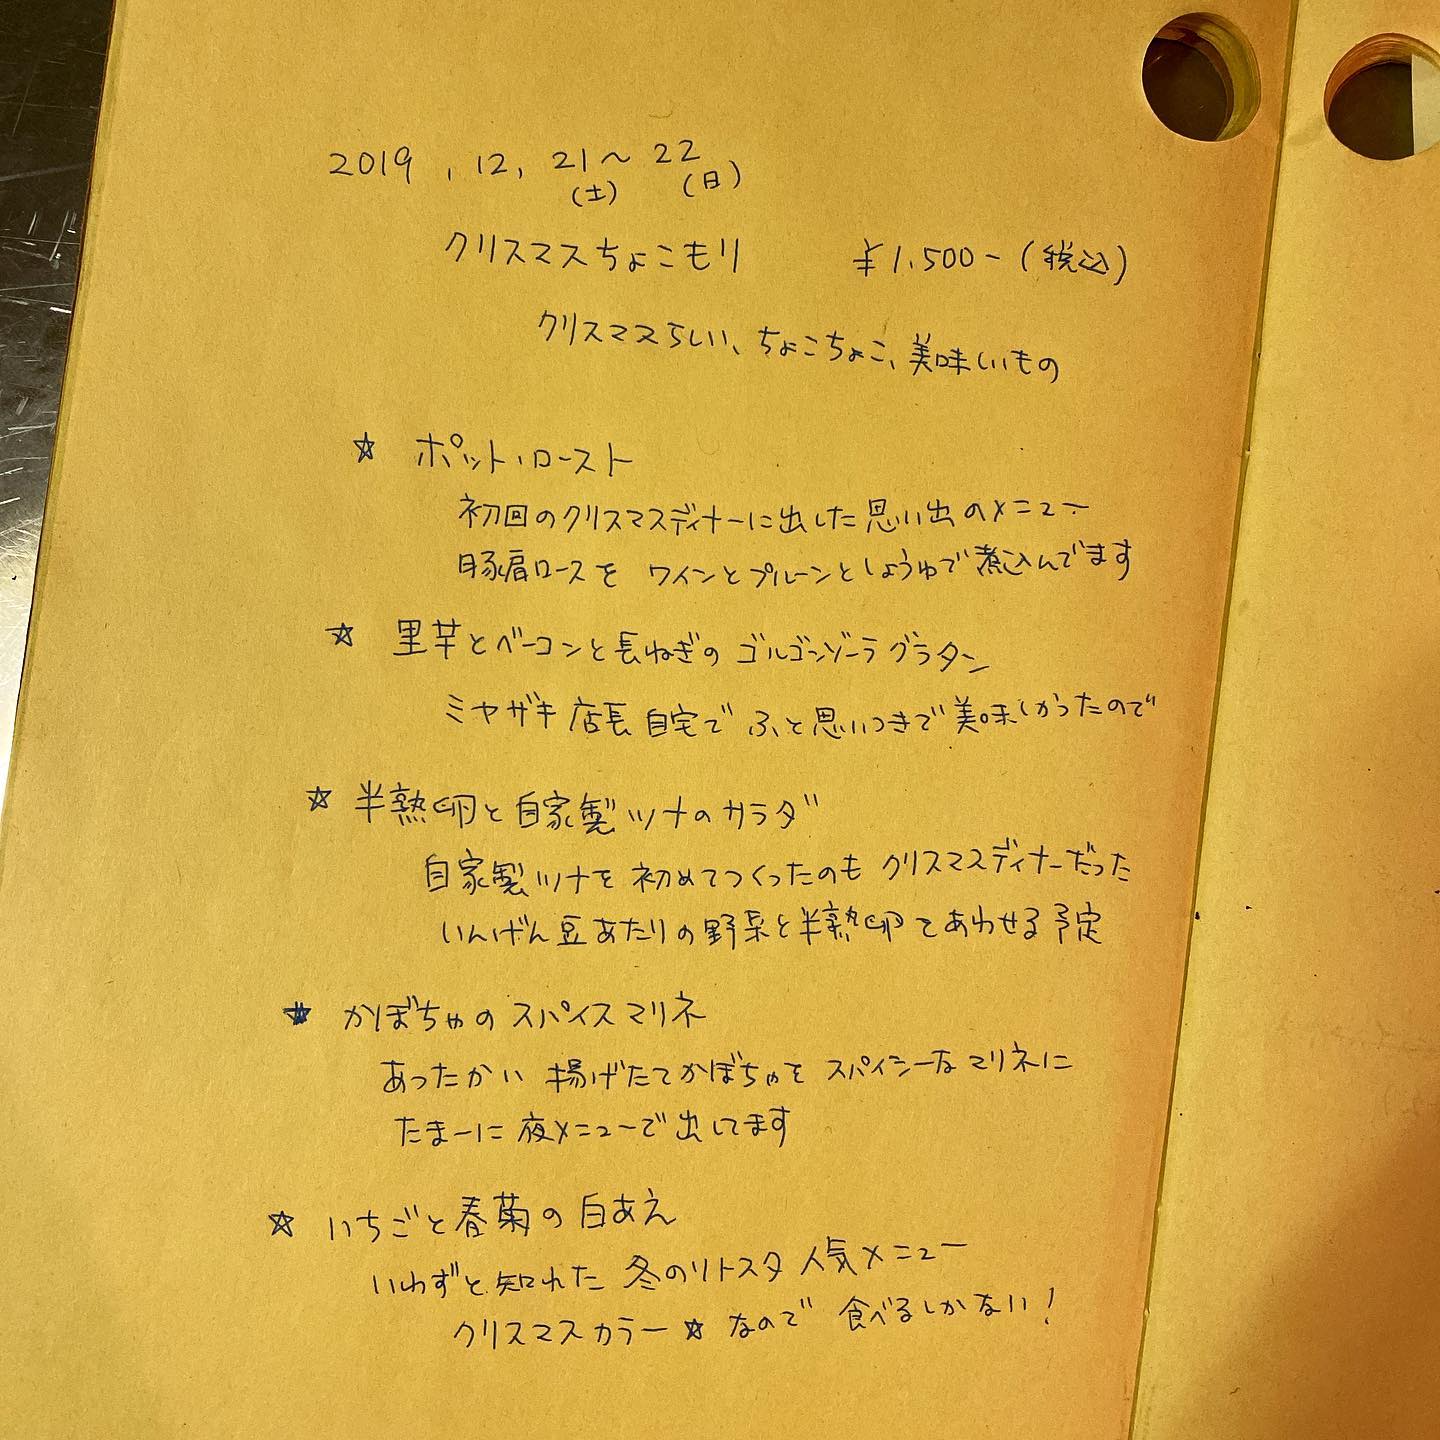 2019, 12, 21〜22
(土) (日)
クリスマスちょこもり ¥1.500-(税込)
クリスマスらしい、ちょこちょこ、美味しいもの
☆ ポット・ロースト
初回のクリスマスディナーに出した思い出のメニュー
豚肩ロースを ワインとプルーンとしょうゆで煮込んでます
☆ 里芋とベーコンと長ねぎの ゴルゴンゾーラグラタン
ミヤザキ店長 自宅で ふと思いつきで美味しかったので
☆ 半熟卵と自家製ツナのサラダ
自家製ツナを 初めてつくったのも クリスマスディナーだった
いんげん豆あたりの野菜と半熟卵をあわせる予定
★ かぼちゃのスパイスマリネ
あったかい 揚げたてかぼちゃを スパイシーなマリネに
たまーに夜メニューで出してます
☆ いちごと春菊の白あえ
いわずと知れた 冬のリトスタ人気メニュー
クリスマスカラー☆なので 食べるしかない!